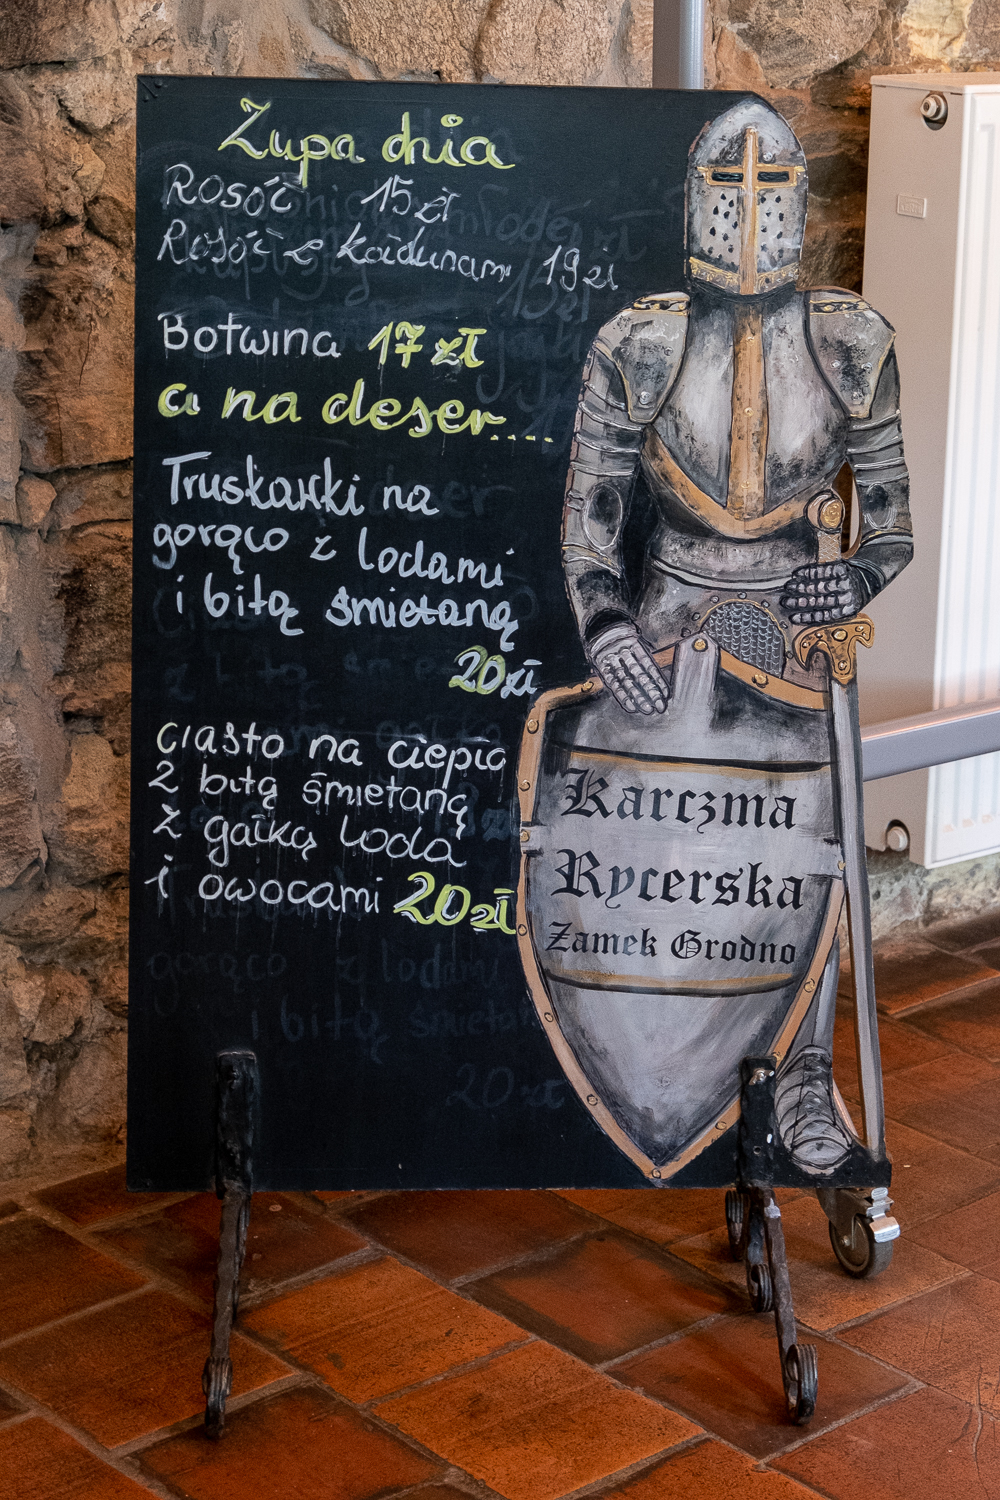 Zupa dnia
Rosóć 15 zł
Rosóć z kałdunami 19 zł
Botwina 17 zł
a na deser....
Truskawki na
gorąco z lodami
i bitą śmietaną
20 zł
Ciasto na ciepło
z bitą śmietaną
z gałką loda
i owocami 20 zł
Karczma
Rycerska
Zamek Grodno